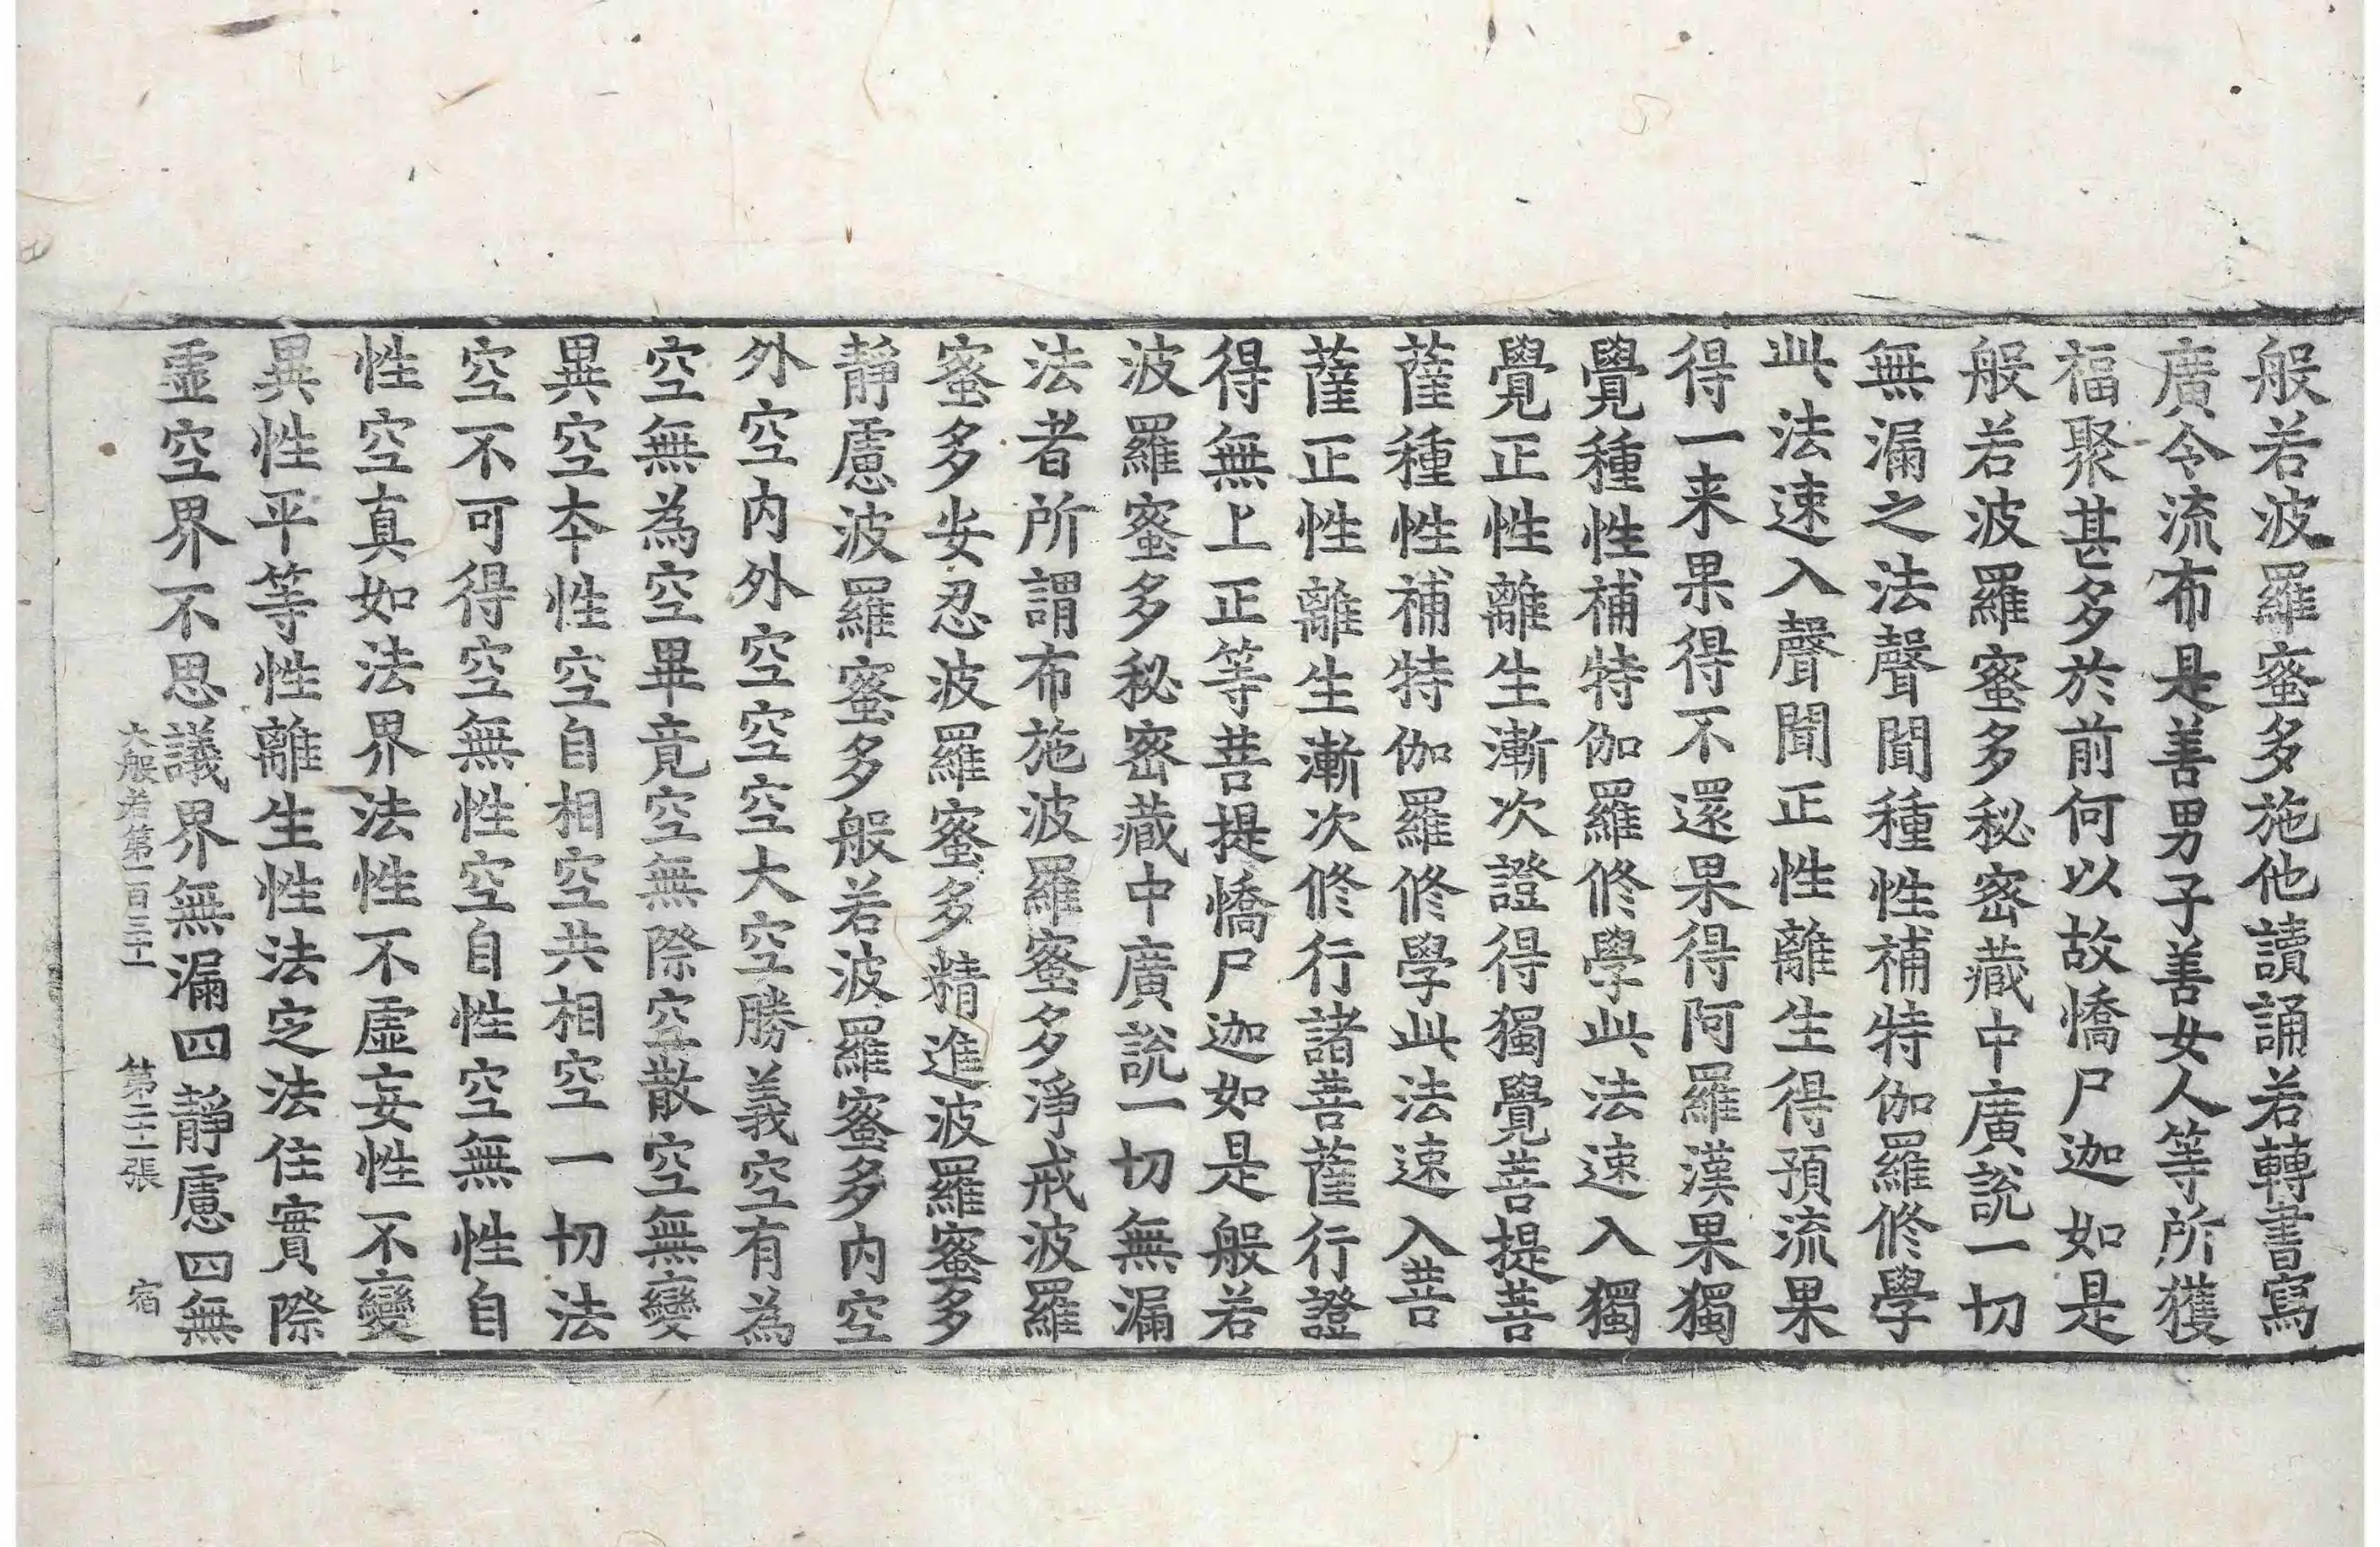 般若波羅蜜多施他讀誦若轉書寫
廣令流布是善男子善女人等所獲
福聚甚多於前何以故憍尸迦如是
般若波羅蜜多秘密藏中廣說一切
無漏之法聲聞種性補特伽羅修學
此法速入聲聞正性離生得預流果
得一来果得不還果得阿羅漢果獨
覺種性補特伽羅修學此法速入獨
覺正性離生漸次證得獨覺菩提菩
薩種性補特伽羅修學此法速入菩
薩正性離生漸次修行諸菩薩行證
得無上正等菩提憍尸迦如是般若
波羅蜜多秘密藏中廣說一切無漏
法者所謂布施波羅蜜多淨戒波羅
蜜多安忍波羅蜜多精進波羅蜜多
靜慮波羅蜜多般若波羅蜜多內空
外空內外空空空大空勝義空有為
空無為空畢竟空無際空散空無變
異空本性空自相空共相空一切法
空不可得空無性空自性空無性自
性空真如法界法性不虛妄性不變
異性平等性離生性法定法住實際
虛空界不思議界無漏四靜慮四無
大般若第一百三十一　第二十二張　宿